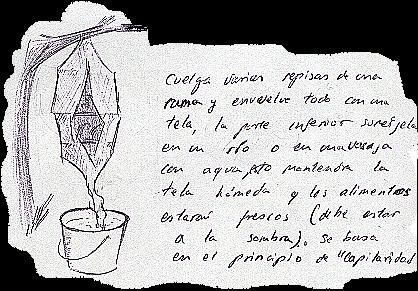 Cuelga varias repisas de una
rama y envuelve todo con una
tela, la parte inferior sumerjela
en un río o en una vasija
con agua esto mantendra la
tela húmeda y los alimentos
estaran frescos (debe estar
a la sombra), se basa
en el principio de "Capilaridad